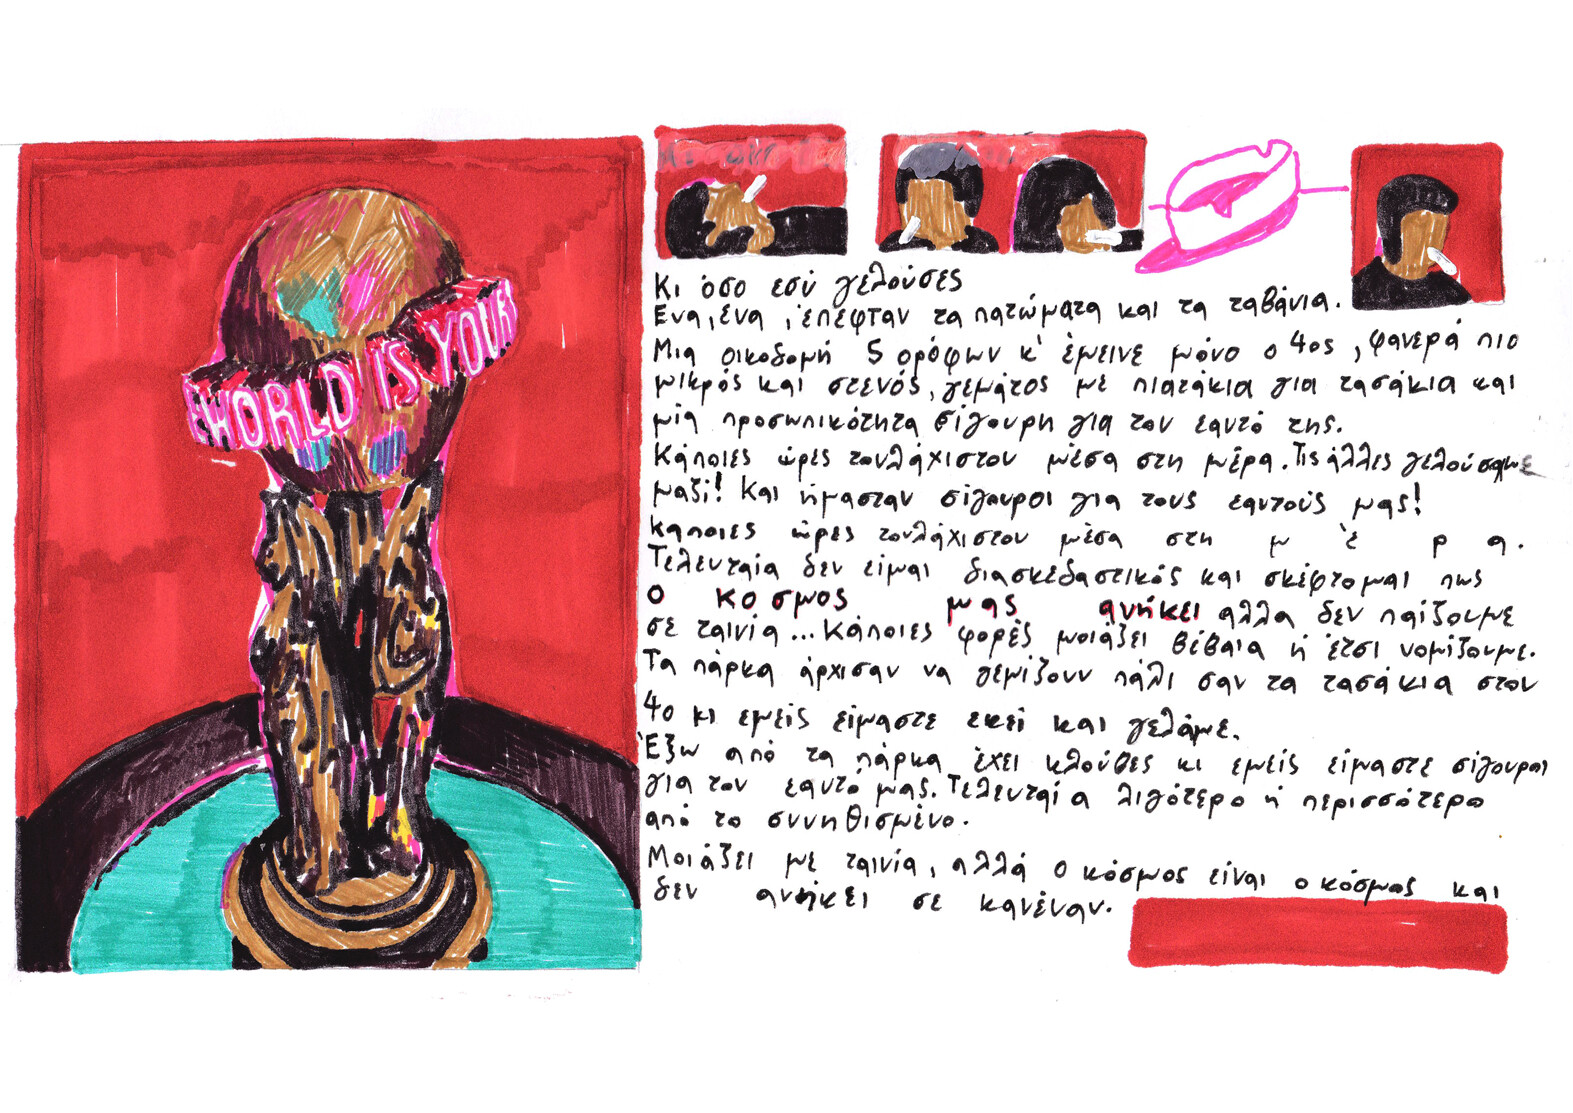 E WORLD IS YOUR
Κι όσο εσύ γελούσες
Ενα, ένα, έπεφταν τα πατώματα και τα ταβάνια.
Μια οικοδομή 5 ορόφων κ' έμεινε μόνο ο 4ος, φανερά πιο
μικρός και στενός, γεμάτος με πιατάκια για τασάκια και
μία προσωπικότητα σίγουρη για τον εαυτό της.
Κάποιες ώρες τουλάχιστον μέσα στη μέρα. Τις άλλες γελούσαμε
μαζί! Και ήμασταν σίγουροι για τους εαυτούς μας!
Καποιες ώρες τουλάχιστον μέσα στη μ έ ρ α.
Τελευταία δεν είμαι διασκεδαστικός και σκέφτομαι πως
ο κοσμος μας ανήκει αλλα δεν παίζουμε
σε ταινία... Κάποιες φορές μοιάζει βέβαια ή έτσι νομίζουμε.
Τα πάρκα άρχισαν να γεμίζουν πάλι σαν τα τασάκια στον
4ο κι εμείς είμαστε εκεί και γελάμε.
Έξω από τα πάρκα έχει κλούβες κι εμείς είμαστε σίγουροι
για τον εαυτό μας. Τελευταία λιγότερο ή περισσότερο
από το συννηθισμένο.
Μοιάζει με ταινία, αλλά ο κόσμος είναι ο κόσμος και
δεν ανήκει σε κανέναν.